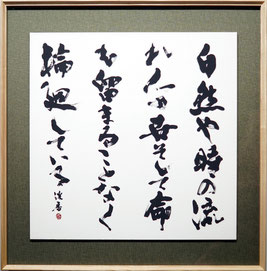 自然や時の流
れ人の呑そして命
も留まることなく
輪廻している